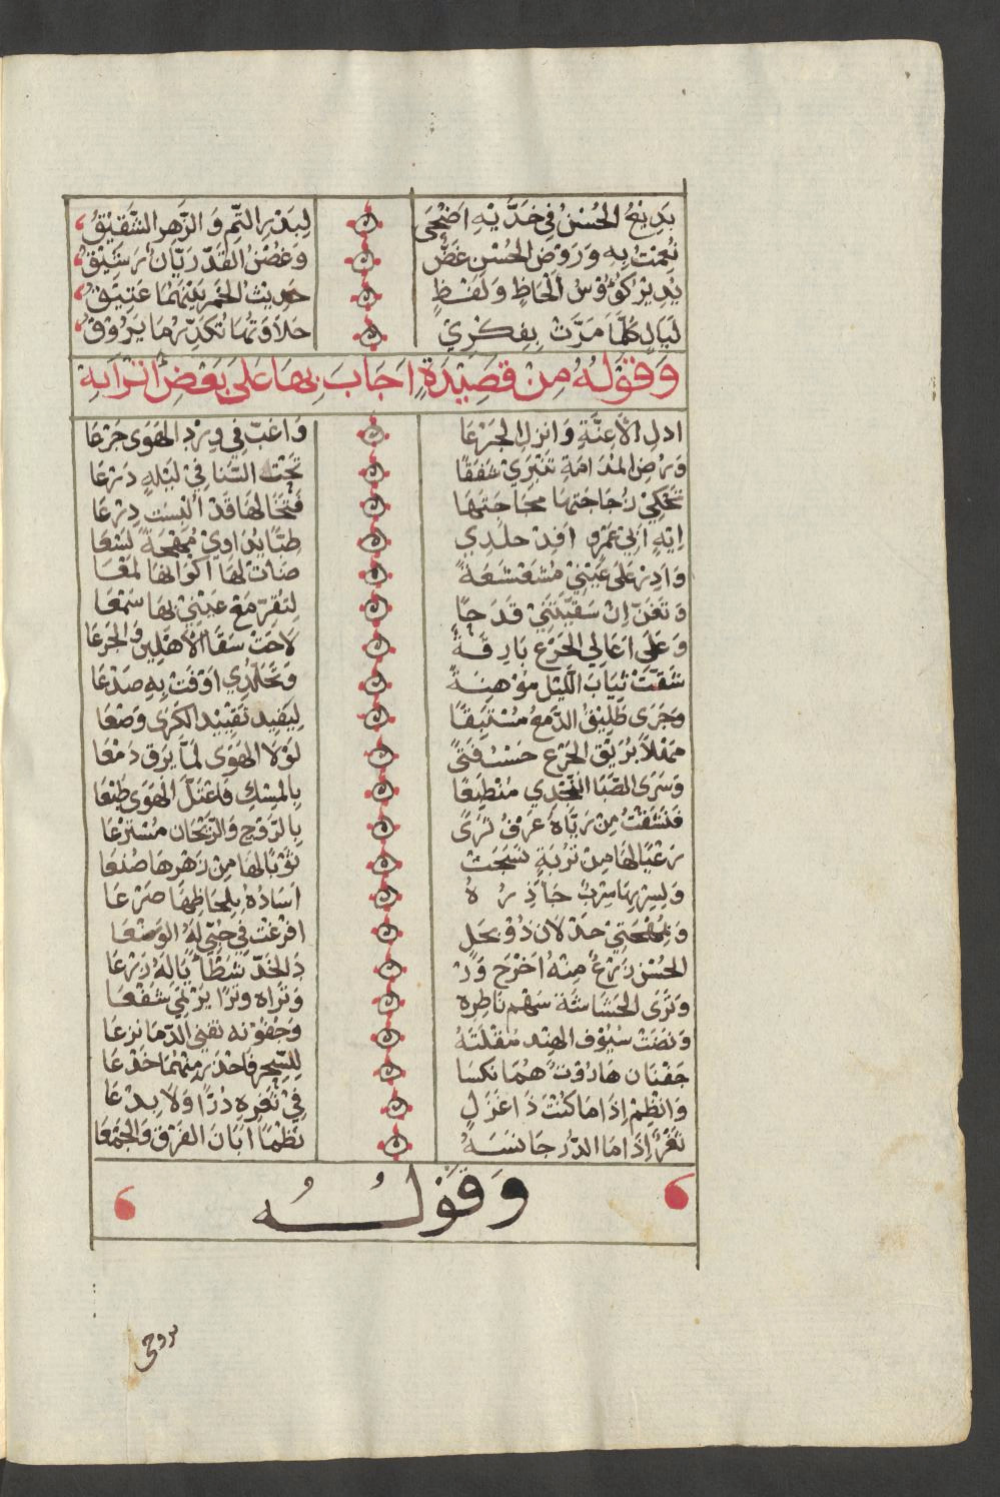 بَدِيْعُ الحُسْنِ فِي خَدَّيْهِ اَضْحَى لِبَدْرِ التَّمِّ وَالزَّهرِ الشَّقِيْقُ
نَعِمْتُ بِهِ وَرَوْضُ الحُسْنِ غَضٌّ وَغُصْنُ القَدِّ رَيَّانٌ رَشِيْقُ
يُدِيْرُ كُؤُوسَ اَلْحَاظٍ وَلَفْظٍ حَدِيْثُ الخَمْرِ بَيْنَهُمَا عَتِيْقُ
لَيَالٍ كُلَّمَا مَرَّتْ بِفِكْرِيْ حَلاَوَتُهَا تُكَدِّرُ مَا يَرُوْقُ
وَقَوْلُهُ مِنْ قَصِيْدَةٍ اَجَابَ بِهَا عَلَى بَعْضِ اَتْرَابِهِ
ادلِ الاَعِنَّةِ وَانزِلِ الجَرْعَا وَاعْبّ فِي وِرْدِ الهَوَى جَرْعَا
وَرضِ المُدَامَةِ تَنْبَرِيْ شَفَقًا تَحْتَ السَّنَا فِيْ لَيْلِهِ دَرْعَا
تَحْكِيْ زُجَاجَتهَا قَدْ اُلْبِسَتْ دِرْعَا
اِيْهٍ اَبِيْ عَمْرٍو افِدْ جلدِي طبًّا يُدَاوِيْ مُهْجَةً لَسْعَا
وَاَدِرْ عَلَى عَيْنِيْ مُشَعْشَعَةً ضَاتْ لَهَا اَكْوَانهَا لَمْعَا
وَتَغَنَّ اِنْ سَقَّيْتَنِيْ قَدَحًا لِتُقِرَّ مَعْ عَيْنِيْ بِهَا سَمْعَا
وَعَلَى اَعَالِي الجَزْعِ بَارِقَةٌ لاَحَتْ سَقَا الاَهْلِيْنَ وَالجَزعَا
شَقَّتْ ثِيَابَ اللَّيْلِ مُوْهِنَةً وَتَجَلُّدِي اَوْفَتْ بِهِ صَدْعَا
وَجَرَى طَلِيْقُ الدَّمعِ مُسْتَبِقًا لِيُفِيد تَقْيِيْد الكَرَى وَضْعَا
مَهْلاً بُرَيْقَ الجَزْعِ حَسْبُ فَتًى لَوْلاَ الهَوَى لَمَّا يَرق دَمْعَا
وَسَرَى الصَّبَا النَّجْدِي مُنْطَبِعًا بِالمِسْكِ فَاعْتَلَّ الهَوَى طَبْعَا
فَنَشَقْتُ مِنْ رَيَّاهُ عَرْفَ ثَرًى بِالرَّوْحِ وَالرَّيْحَانِ مُسْتَرْعَا
رَعْيًا لَهَا مِنْ تُرْبَةٍ نَسَجَتْ ثَوْبًا لَهَا مِنْ زَهْرِهَا صُنْعَا
وَلِسِرْبِهَا سِرْبُ جَآذِرُهُ اُسَادُهُ بِلِحَاظِهَا صَرْعَا
وَبِمُهْجَتِيْ جَذْلاَنُ ذُوْ بَخَلٍ افرَغْتُ فِي حُبِّي لَهُ الوسْعَا
الحُسْنُ زَرْعٌ مِنْهُ اَخْرَجَ وَرْدَ الخَدِّ شَطْأً يَا لَهُ زَرْعَا
وَتَرَى الحَشَاشَةَ سَهْمَ نَاظِرِهِ وَتَرَاهُ وَتْرًا يَرْتَمِيْ شَفْعَا
وَنَضَتْ سُيُوْف الهِنْدِ مُقْلَتُهُ وَجفُوْنه تَفْنِي الدِّمَا نزعَا
جَفْنَان هَارُوْتٌ هُمَا نكسَا لِلسِّحْرِ فَاحْذَرْ مِنْهُمَا خَدْعَا
وَانْظِمْ اِذَا مَا كُنْتَ ذَا غَزَلٍ فِيْ ثَغْرِهِ دُرًّا وَلاَ بِدْعَا
ثَغْرٌ اِذَا مَا الدُّرُّ جَانَسَهُ نَظْمًا اَبَانَ الفَرْقَ وَالجَمْعَا
وَقَوْلُهُ
بروحي